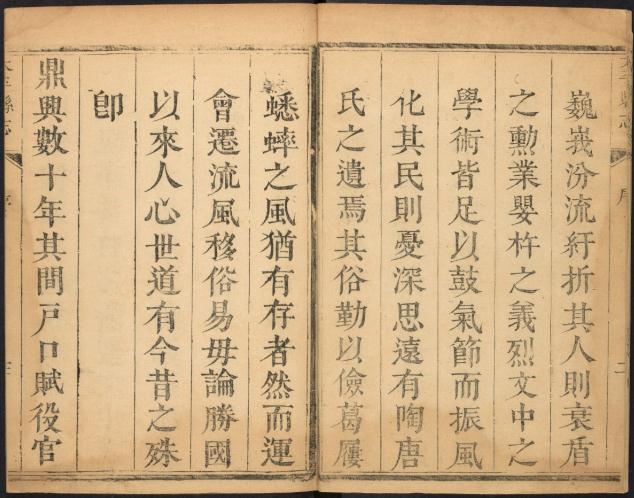 巍峩汾流紆折其人則衰盾
之勳業嬰杵之義烈文中之
學術皆足以鼓氣節而振風
化其民則憂深思遠有陶唐
氏之遺焉其俗勤以儉葛屨
蟋蟀之風猶有存者然而運
會遷流風移俗易毋論勝國
以來人心世道有今昔之殊
卽
鼎興數十年其間戸口賦役官